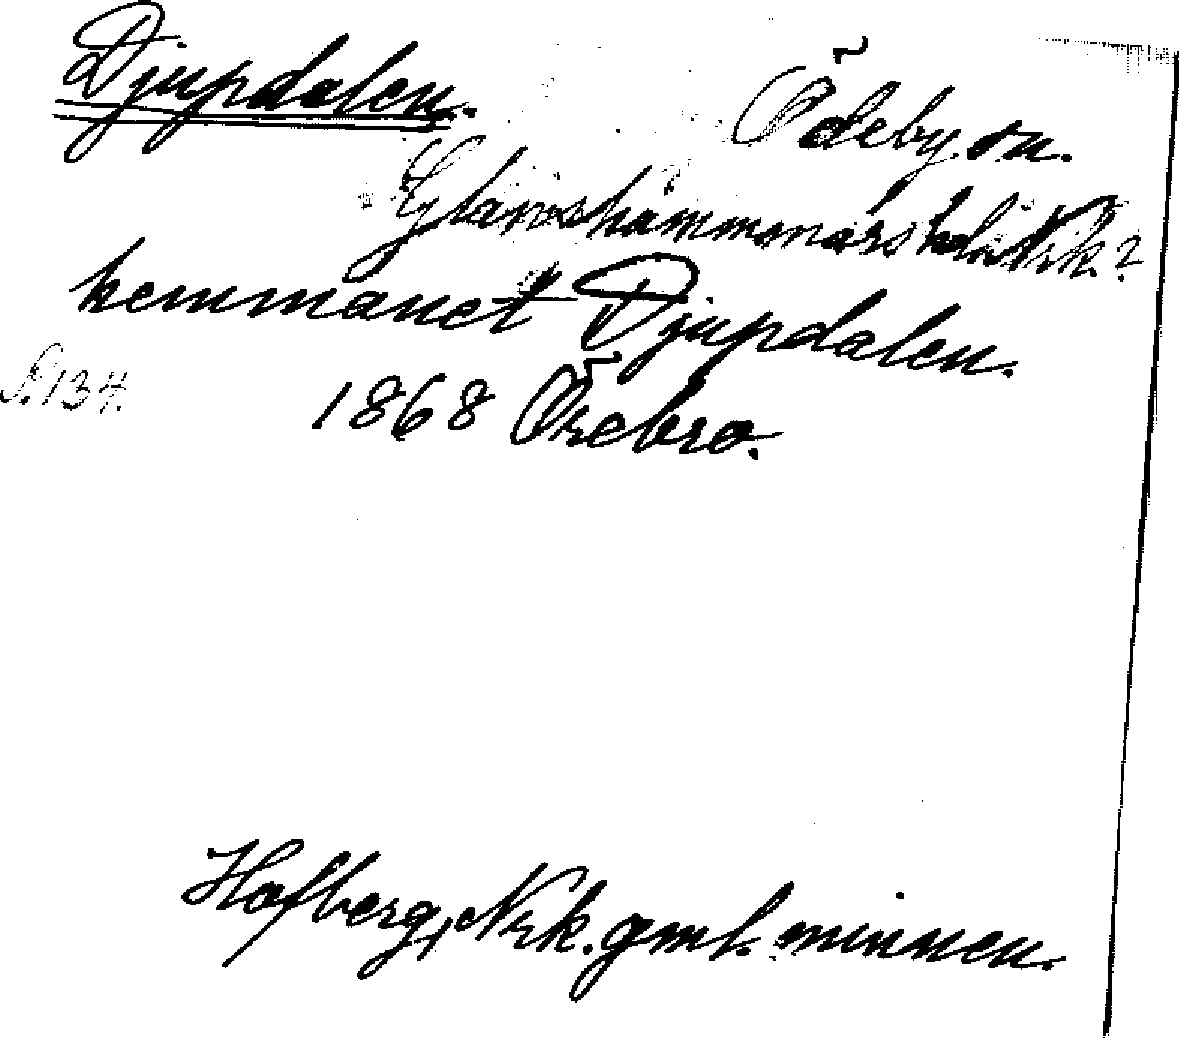 Djupdalen.
Ödeby sn.
Glanshammars hd. Nrk.?
hemmanet Djupdalen.
N. 134.
1868 Örebro.
Hofberg, Nrk. gml. minnen.